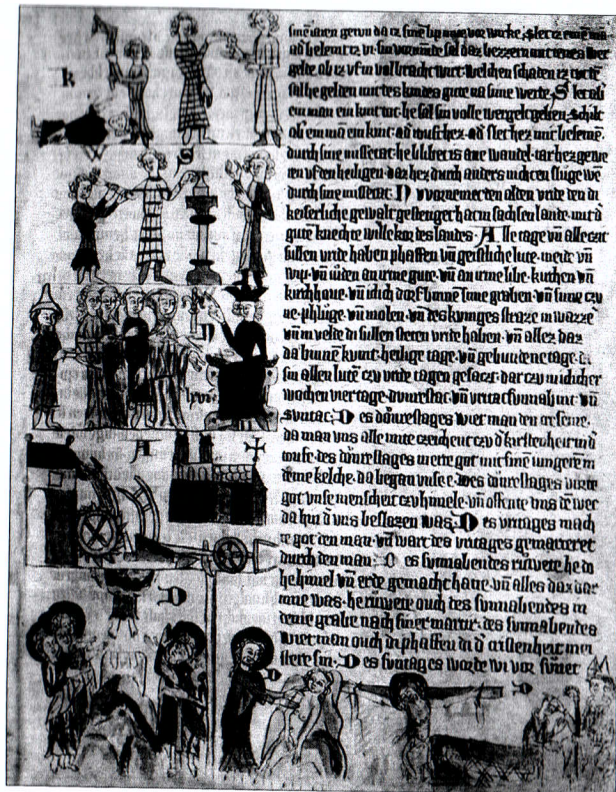 k
S
D
A
D
D
D
vor werke. slet er eyme ma
ad belemt er vn sin vormunde sal daz bezzern mit
gelde ab iz vf in volbracht wirt welchen schaden er tut
sal he gelden mit des kindes gute na sime werte. Slet abir
ein man ein kint tot. he sal sin volle wergelt geben. Schilt
ab ein man ein kint. ad roufthez. ad slet hez mit beseme
durch sine missetat. he blibet is ane wandel. tar hez gewe
ren vf den heiligen. daz hez durch anders nicht en sluge we
durch sine missetat. Nu vornemet den alden vride den di
keiserliche gewalt gestetiget hat in sachsen lande. mit d
guten knechte wille kor des landes. Alle tage vn alle cziit
sullen vride haben phaffen vn geistliche lute. meide vn
wip. vn iuden an irme gute. vn an irme libe. kirchen vn
kirchhoue. vn iclich dorf binnen sime graben. vn sime czu
ne. phluge. vn molen. vn des kuniges straze in wazzer
vn in velde di sullen steten vride haben. vn allez daz
da binnen kumt. heilige tage. vn gebundene tage. di
sin allen luten czu vride tagen gesaczt. dar czu in iclicher
wochen vier tage. dunrestac. vn vritac. sunabint. vn
suntac. Des dunrestages wiet man den cresemen.
da man vns alle mite czeichent czu d kristenheit in d
toufe. des dunrestages merte got mit sinen iungeren in
deme kelche. da began vnse e. des dunrestages vurte
got vnse menscheit czu himele. vn offente vns den wec
da hin d vns beslozen was. Des vritages mach
te got den man. vn wart des vritages gemartert
durch den man. Des sunnabendes ruwete he do
he himel vn erde gemacht hatte. vn alles daz dar
inne was. he ruwete ouch des sunnabendes in
deme grabe nach siner martir. des sunnabendes
wiet man ouch di phaffen di d cristenheit mei
stere sin. Des suntages worde wi vor suner